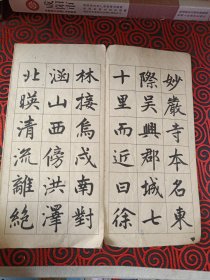 妙嚴寺本名東
際吳興郡城七
十里而近曰徐
林接烏戍南對
涵山西傍洪澤
北暎清流離絶